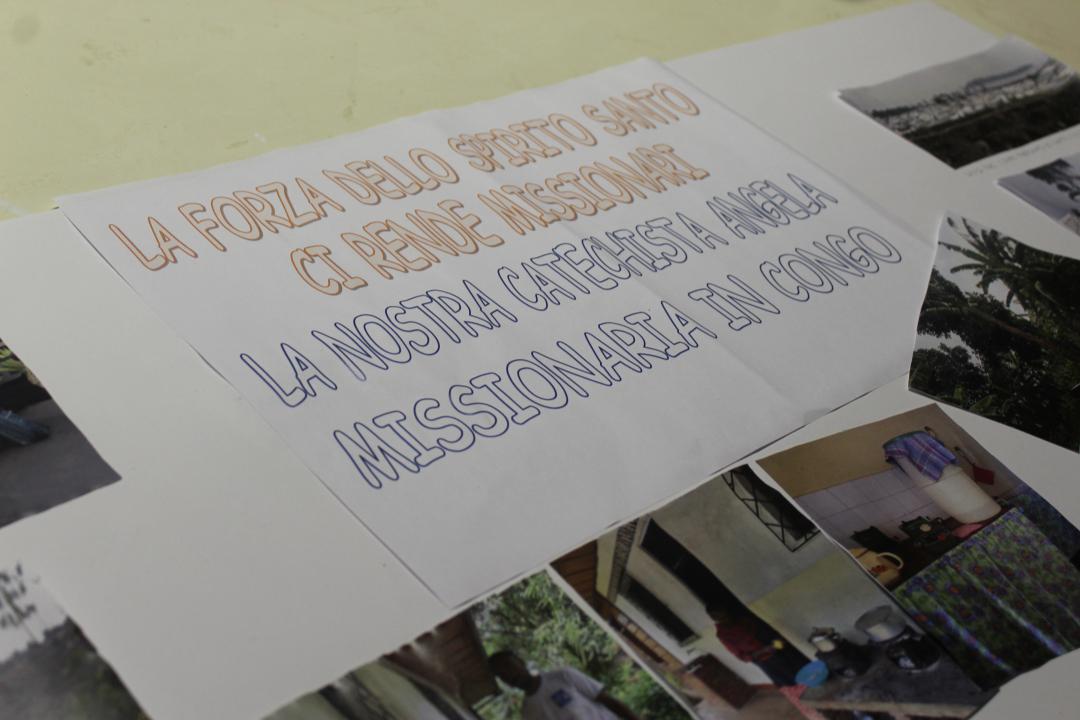 LA FORZA DELLO SPIRITO SANTO
CI RENDE MISSIONARI
LA NOSTRA CATECHISTA ANGELA
MISSIONARIA IN CONGO